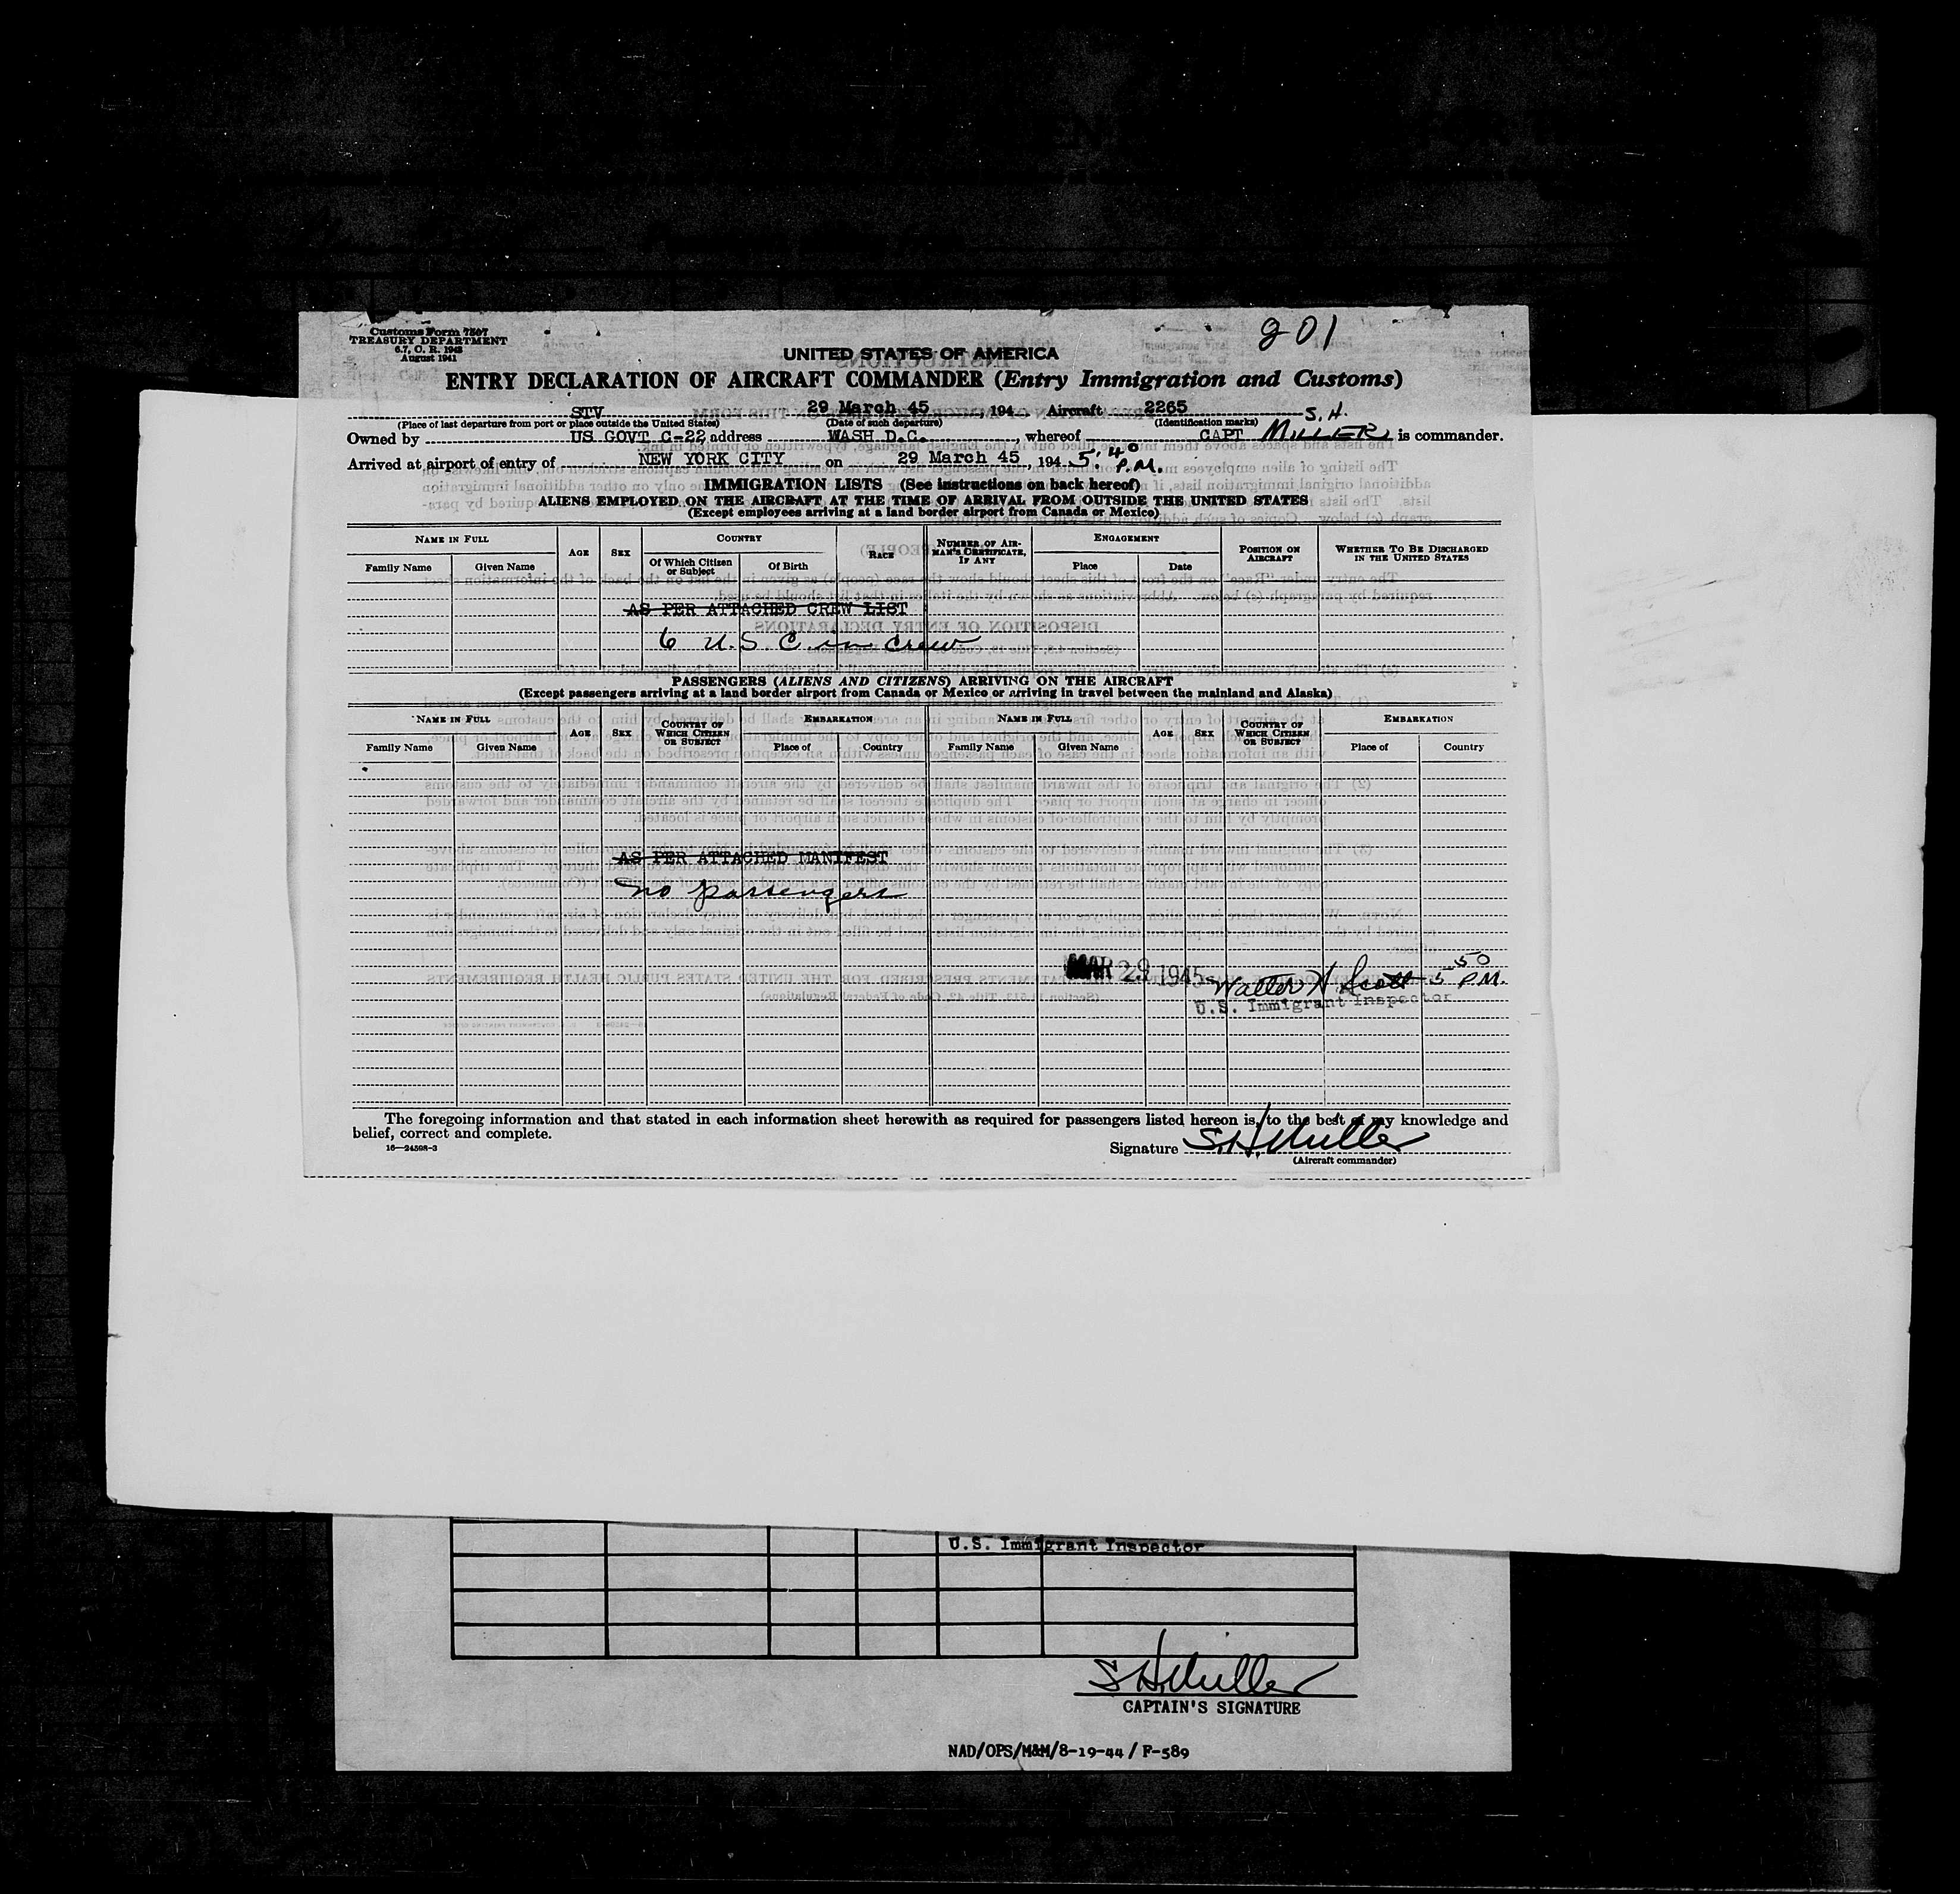 201
Customs Form 7507
TREASURY DEPARTMENT
6.7, C. R. 1943
August 1941
UNITED STATES OF AMERICA
ENTRY DECLARATION OF AIRCRAFT COMMANDER (Entry Immigration and Customs)
STV 29 March 45, 194 Aircraft 2265 S.H.
(Place of last departure from port or place outside the United States) (Date of such departure) (Identification marks)
Owned by US GOVT C-22, address WASH D.C., whereof CAPT MILLER is commander.
Arrived at airport of entry of NEW YORK CITY on 29 March 45, 194 5:40 P.M.
IMMIGRATION LISTS (See instructions on back hereof)
ALIENS EMPLOYED ON THE AIRCRAFT AT THE TIME OF ARRIVAL FROM OUTSIDE THE UNITED STATES
(Except employees arriving at a land border airport from Canada or Mexico)
NAME IN FULL AGE SEX COUNTRY RACE NUMBER OF AIRMAN'S CERTIFICATE, IF ANY ENGAGEMENT POSITION ON AIRCRAFT WHETHER TO BE DISCHARGED IN THE UNITED STATES
Family Name Given Name Of Which Citizen or Subject Of Birth Place Date
AS PER ATTACHED CREW LIST
6 U.S.C. in crew
PASSENGERS (ALIENS AND CITIZENS) ARRIVING ON THE AIRCRAFT
(Except passengers arriving at a land border airport from Canada or Mexico or arriving in travel between the mainland and Alaska)
NAME IN FULL AGE SEX COUNTRY OF WHICH CITIZEN OR SUBJECT EMBARKATION NAME IN FULL AGE SEX COUNTRY OF WHICH CITIZEN OR SUBJECT EMBARKATION
Family Name Given Name Place of Country Family Name Given Name Place of Country
AS PER ATTACHED MANIFEST
no passengers
MAR 29 1945 Walter H Scott 5 50 P.M.
U.S. Immigrant Inspector
The foregoing information and that stated in each information sheet herewith as required for passengers listed hereon is, to the best of my knowledge and
belief, correct and complete.
16—24598-3
Signature S.H. Miller
(Aircraft commander)
U.S. Immigrant Inspector
S H Miller
CAPTAIN'S SIGNATURE
NAD/OPS/M&M/8-19-44 / F-589